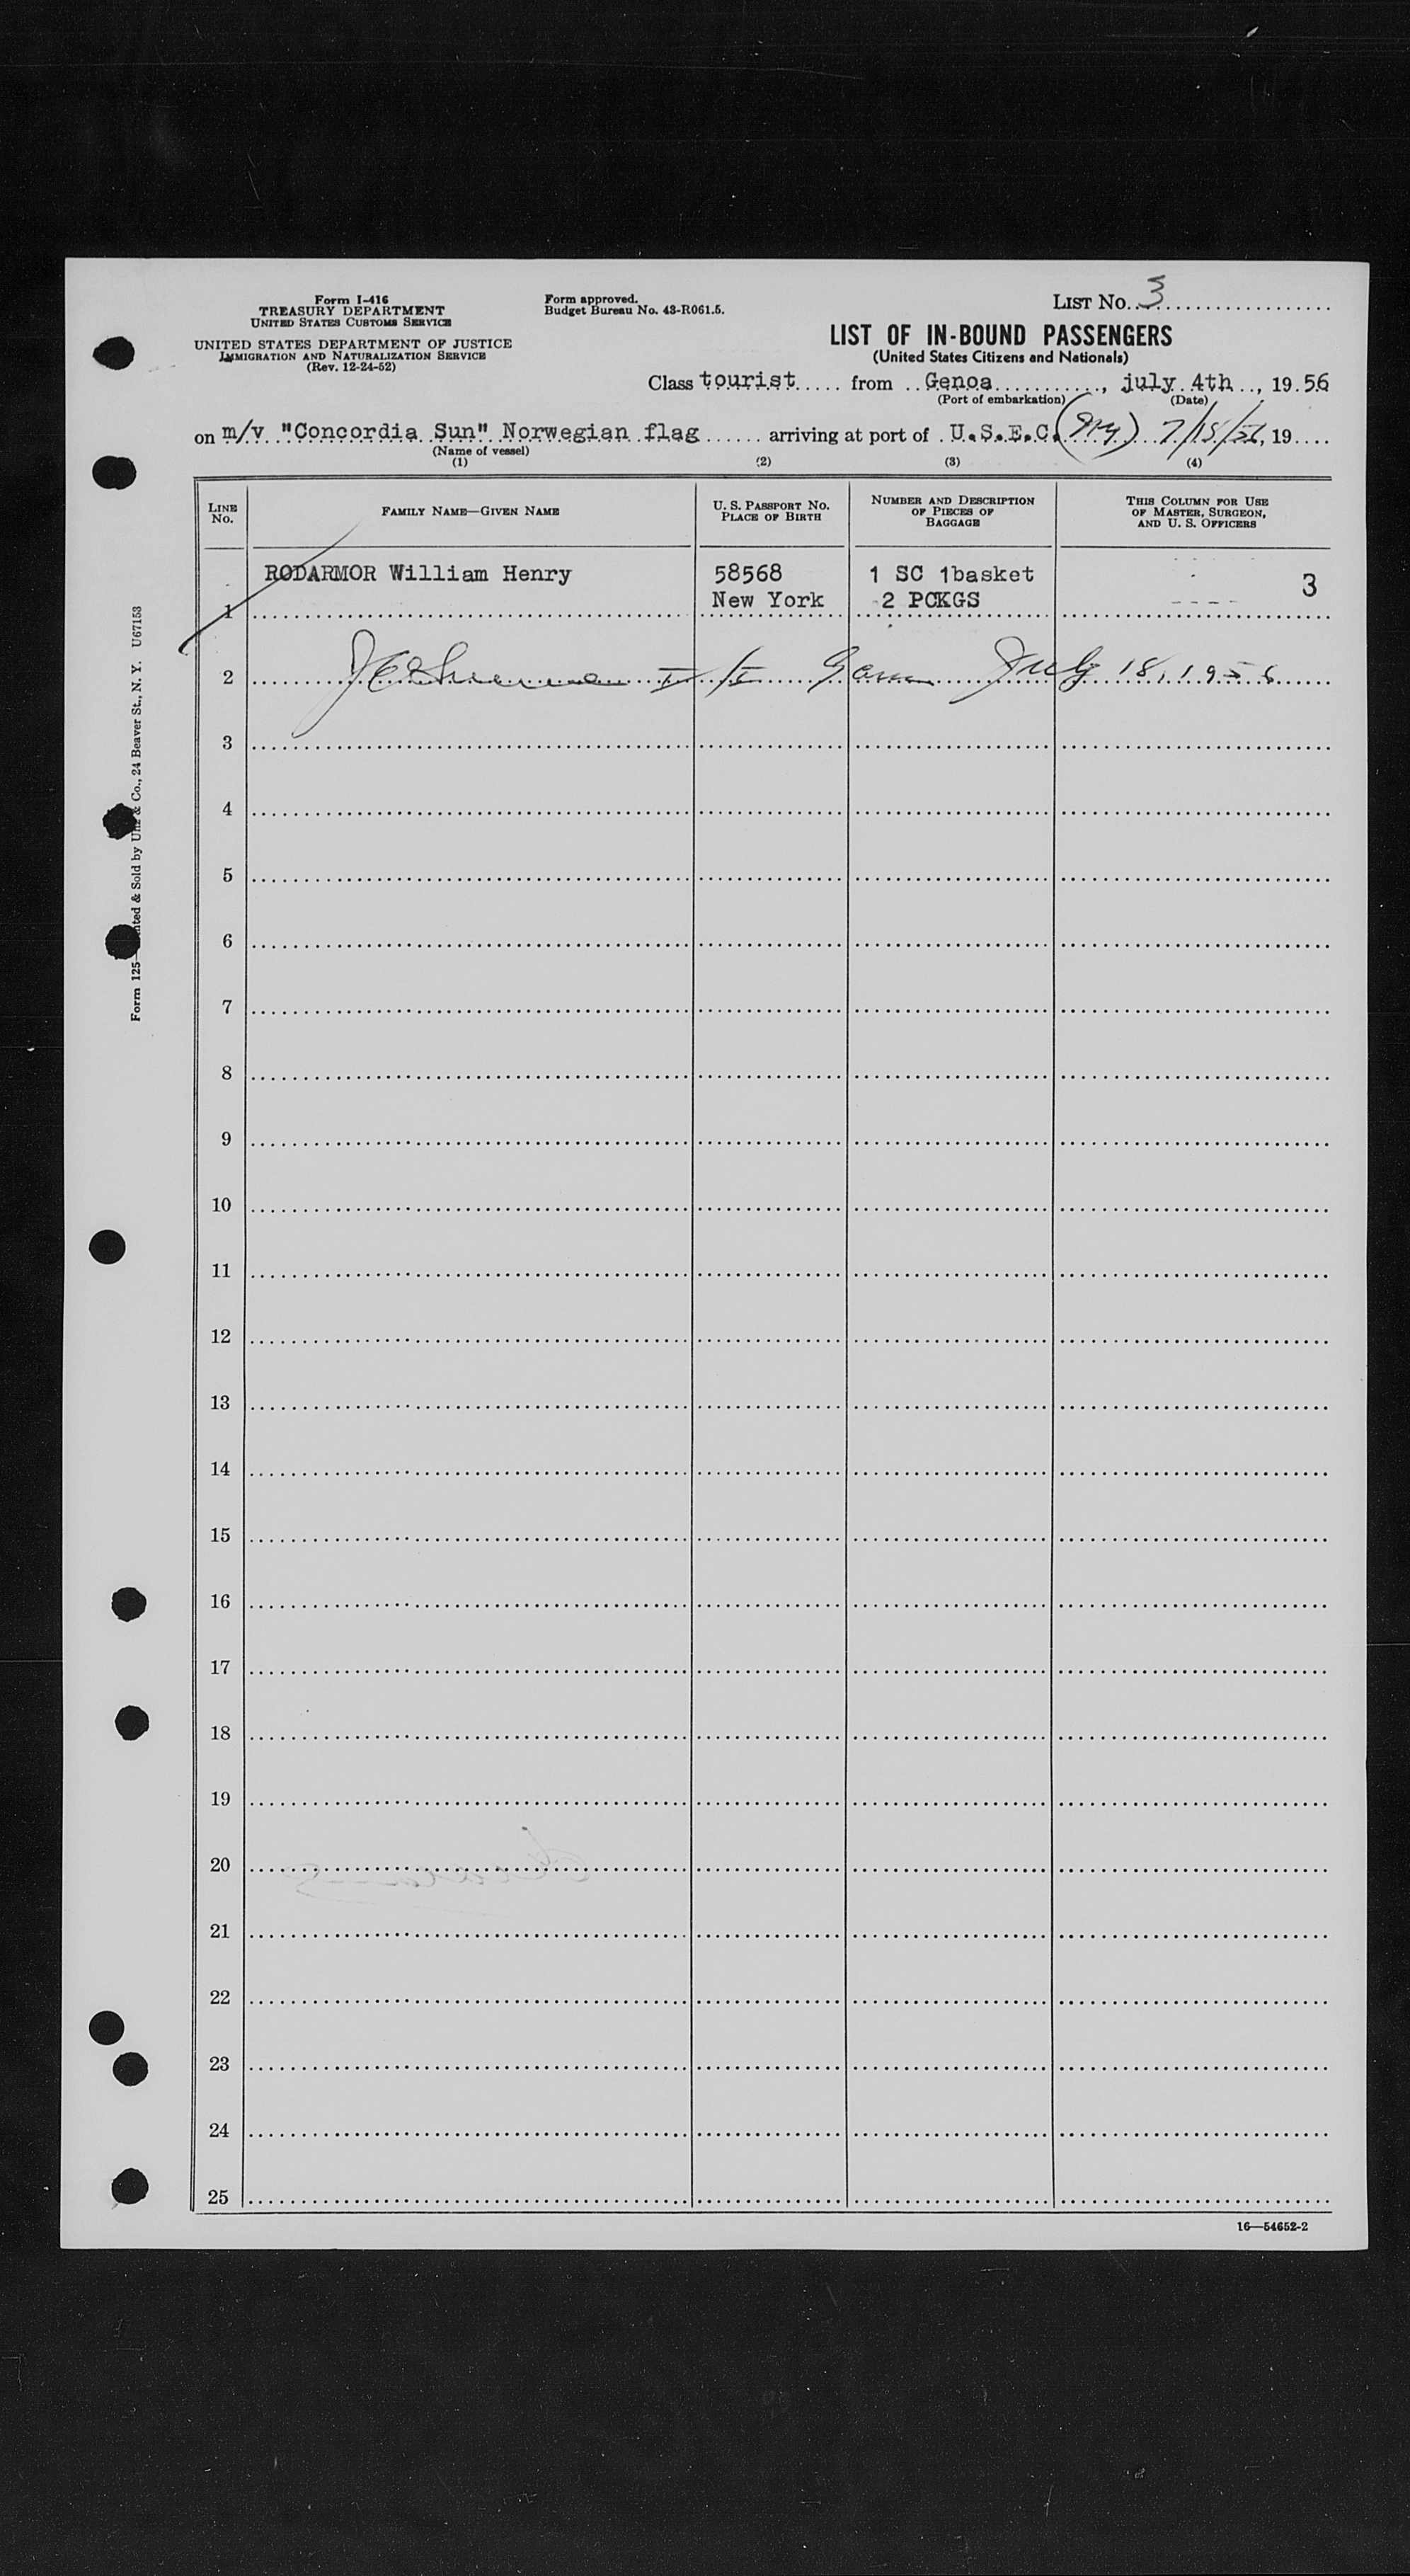 Form I-416
TREASURY DEPARTMENT
UNITED STATES CUSTOMS SERVICE
UNITED STATES DEPARTMENT OF JUSTICE
IMMIGRATION AND NATURALIZATION SERVICE
(Rev. 12-24-52)
Form approved.
Budget Bureau No. 43-R061.5.
LIST No. 3
LIST OF IN-BOUND PASSENGERS
(United States Citizens and Nationals)
Class tourist from Genoa, july 4th, 19 56
(Port of embarkation) (Date)
on m/v "Concordia Sun" Norwegian flag arriving at port of U.S.E.C. (NY) 7/18/56, 19
(Name of vessel)
(1) (2) (3) (4)
LINE No.
FAMILY NAME—GIVEN NAME
U. S. PASSPORT NO.
PLACE OF BIRTH
NUMBER AND DESCRIPTION
OF PIECES OF
BAGGAGE
THIS COLUMN FOR USE
OF MASTER, SURGEON,
AND U. S. OFFICERS
RODARMOR William Henry 58568 1 SC 1basket 3
1 New York 2 PCKGS
2 July 18, 1956
3
4
5
6
7
8
9
10
11
12
13
14
15
16
17
18
19
20
21
22
23
24
25
16—54652-2
Form 125 & Sold by & Co., 24 Beaver St., N. Y. U67153